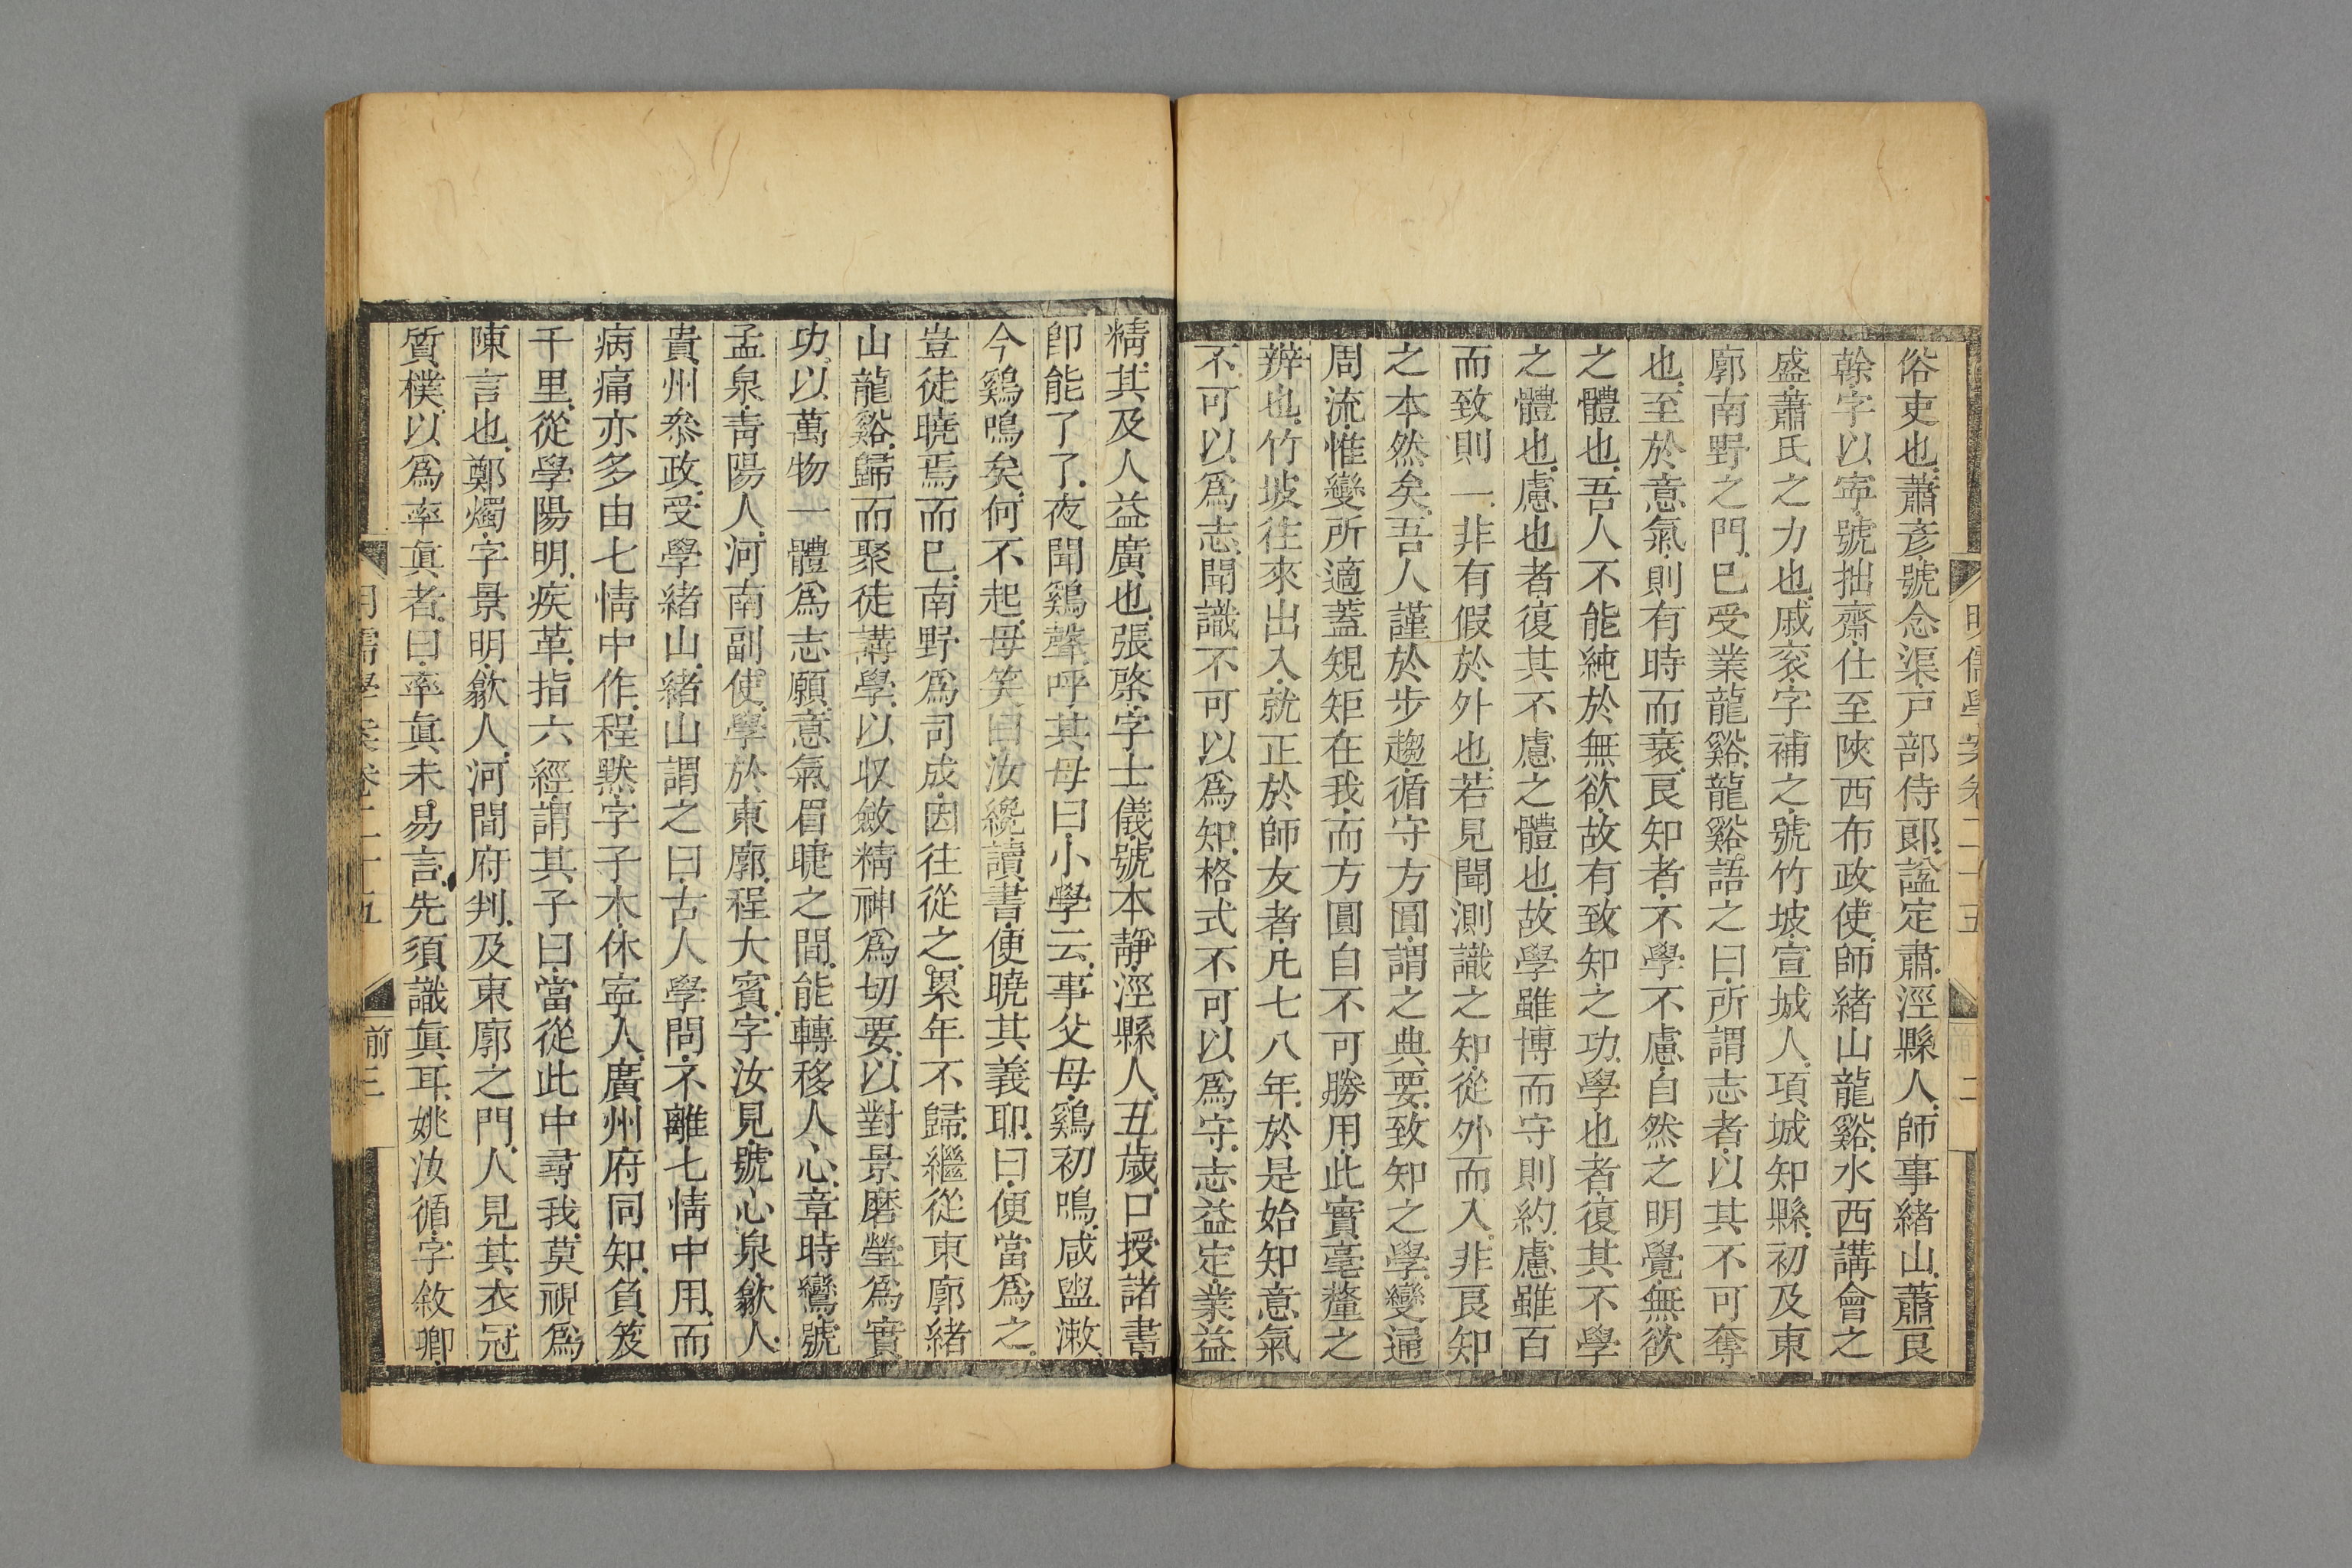 明儒學案卷二十五
前 二
俗吏也蕭彥號念渠戶部侍郎諡定肅涇縣人師事緒山蕭良
榦字以寧號拙齋仕至陝西布政使師緒山龍谿水西講會之
盛蕭氏之力也戚衮字補之號竹坡宣城人項城知縣初及東
廓南野之門已受業龍谿龍谿語之曰所謂志者以其不可奪
也至於意氣則有時而衰良知者不學不慮自然之明覺無欲
之體也吾人不能純於無欲故有致知之功學也者復其不學
之體也慮也者復其不慮之體也故學雖博而守則約慮雖百
而致則一非有假於外也若見聞測識之知從外而入非良知
之本然矣吾人謹於步趨循守方圓謂之典要致知之學變通
周流惟變所適蓋䂓矩在我而方圓自不可勝用此實毫釐之
辨也竹坡往來出入就正於師友者凡七八年於是始知意氣
不可以爲志聞識不可以爲知格式不可以爲守志益定業益
精其及人益廣也張棨字士儀號本靜涇縣人五歲口授諸書
卽能了了夜聞鷄聲呼其母曰小學云事父母鷄初鳴咸盥漱
今鷄鳴矣何不起母笑曰汝纔讀書便曉其義耶曰便當爲之
豈徒曉焉而已南野爲司成因往從之累年不歸繼從東廓緒
山龍谿歸而聚徒講學以収斂精神爲切要以對景磨瑩爲實
功以萬物一體爲志願意氣眉睫之間能轉移人心章時鸞號
孟泉靑陽人河南副使學於東廓程大賓字汝見號心泉歙人
貴州叅政受學緒山緒山謂之曰古人學問不離七情中用而
病痛亦多由七情中作程默字子木休寧人廣州府同知負笈
千里從學陽明疾革指六經謂其子曰當從此中尋我莫視爲
陳言也鄭燭字景明歙人河間府判及東廓之門人見其衣冠
質樸以爲率眞者曰率眞未易言先須識眞耳姚汝循字敘卿
明儒學案卷二十五
前 三